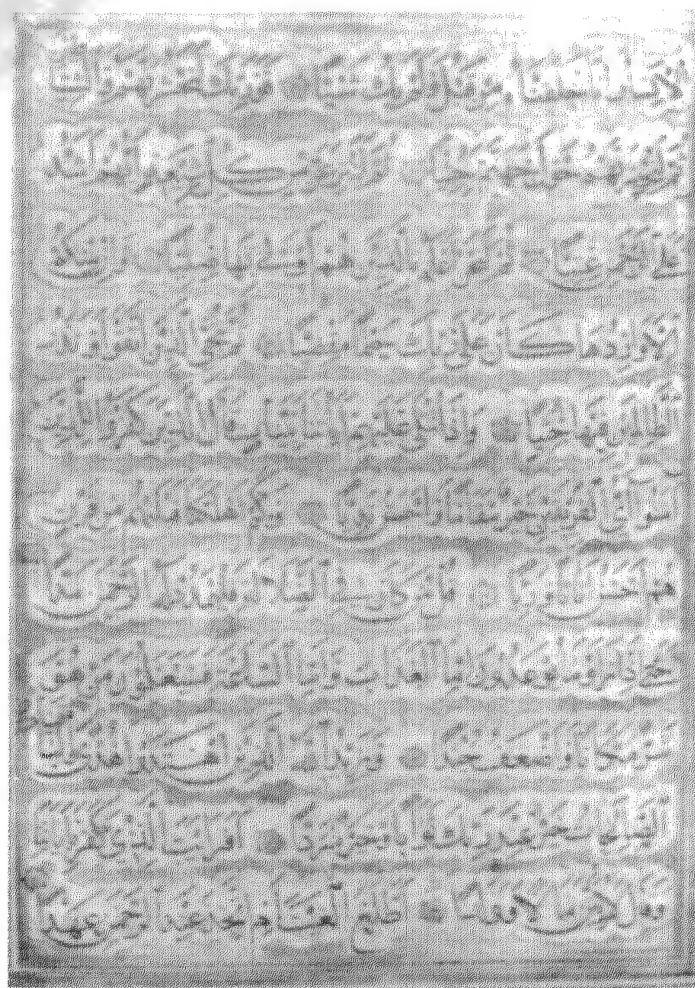 الانسان انا خلقناه من قبل ولم يك شيئا فوربك لنحشرنهم والشياطين
ثم لنحضرنهم حول جهنم جثيا ثم لننزعن من كل شيعة ايهم اشد
على الرحمن عتيا ثم لنحن اعلم بالذين هم اولى بها صليا وان منكم
الا واردها كان على ربك حتما مقضيا ثم ننجى الذين اتقوا ونذر
الظالمين فيها جثيا واذا تتلى عليهم اياتنا بينات قال الذين كفروا للذين
امنوا اى الفريقين خير مقاما واحسن نديا وكم اهلكنا قبلهم من قرن
هم احسن اثاثا ورئيا قل من كان فى الضلالة فليمدد له الرحمن مدا
حتى اذا راوا ما يوعدون اما العذاب واما الساعة فسيعلمون من هو
شر مكانا واضعف جندا ويزيد الله الذين اهتدوا هدى والباقيات
الصالحات خير عند ربك ثوابا وخير مردا افرايت الذى كفر باياتنا
وقال لاوتين مالا وولدا اطلع الغيب ام اتخذ عند الرحمن عهدا